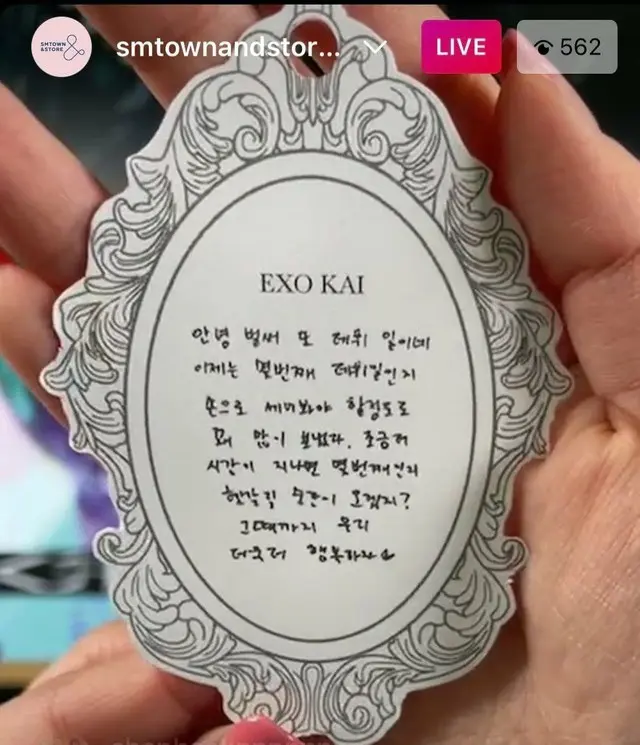 SMTOWN
&STORE
smtownandstor...
LIVE
562
EXO KAI
안녕 벌써 또 데뷔 일이네
이제는 몇번째 데뷔일인지
손으로 세어봐야 할정도로
꽤 많이 보냈다. 조금더
시간이 지나면 몇번째인지
헷갈릴 순간이 오겠지?
그때까지 우리
더욱더 행복하자